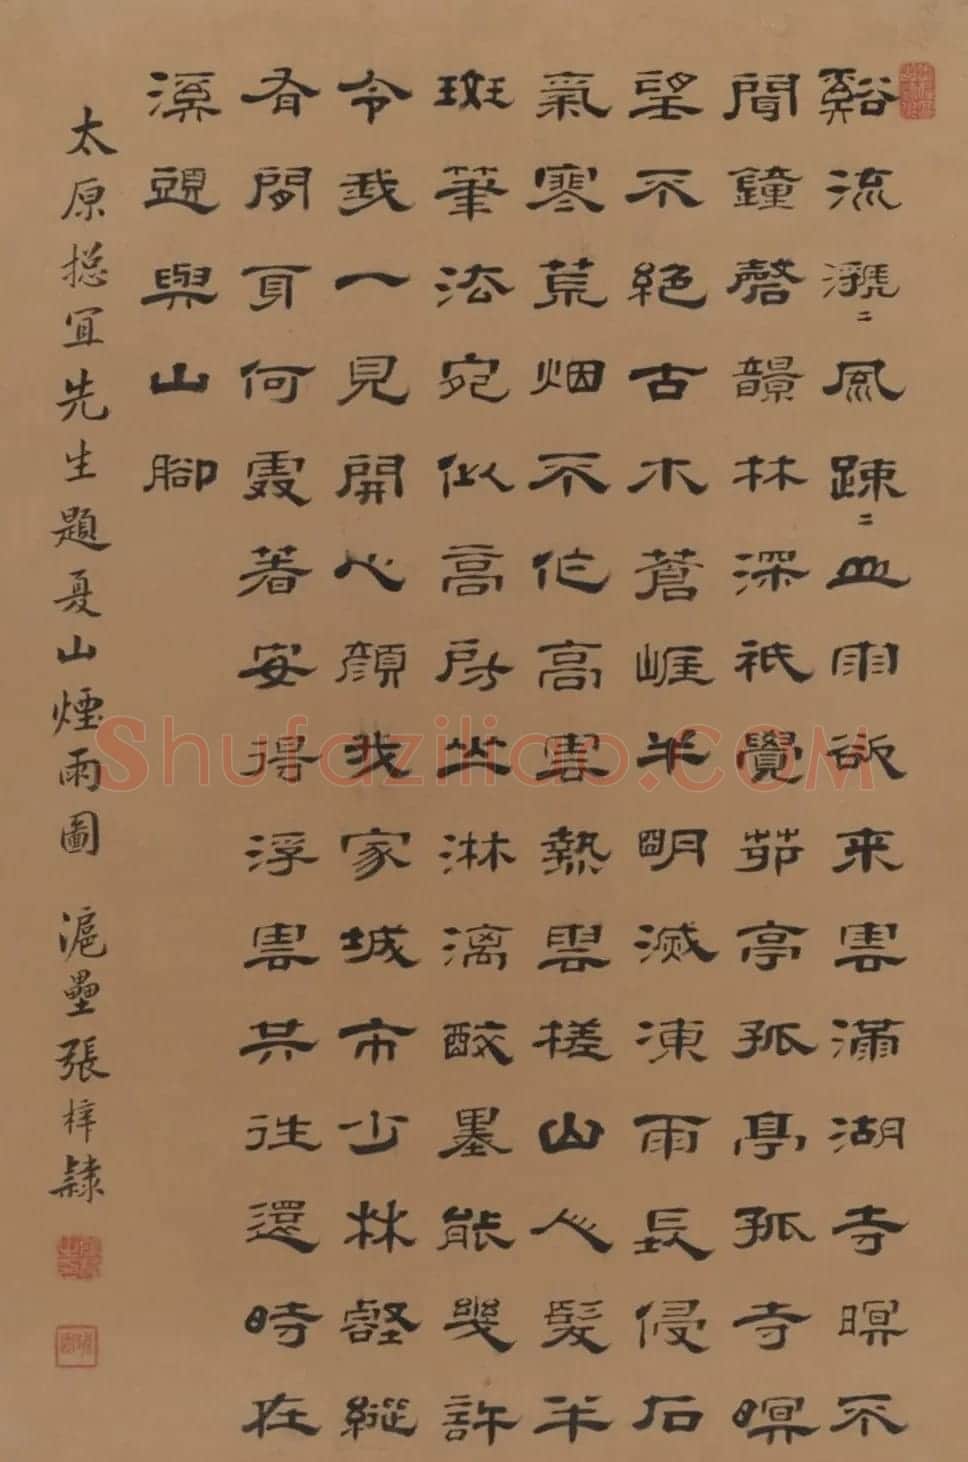 谿流㶁〻風踈〻山雨欲来雲滿湖寺暝不
聞鐘磬韻林深祇覺茆亭孤亭孤寺暝
望不絶古木蒼崕半明滅凍雨長侵石
氣寒荒烟不作高雲熱雲槎山人髮半
斑筆法宛似高房山淋漓醉墨能幾許
令我一見開心顔我家城市少林壑縱
有閒身何處著安得浮雲共往還時在
溪頭與山腳
太原揔宜先生題夏山煙雨圖 滬壘張梓隸
Shufaziliao.com